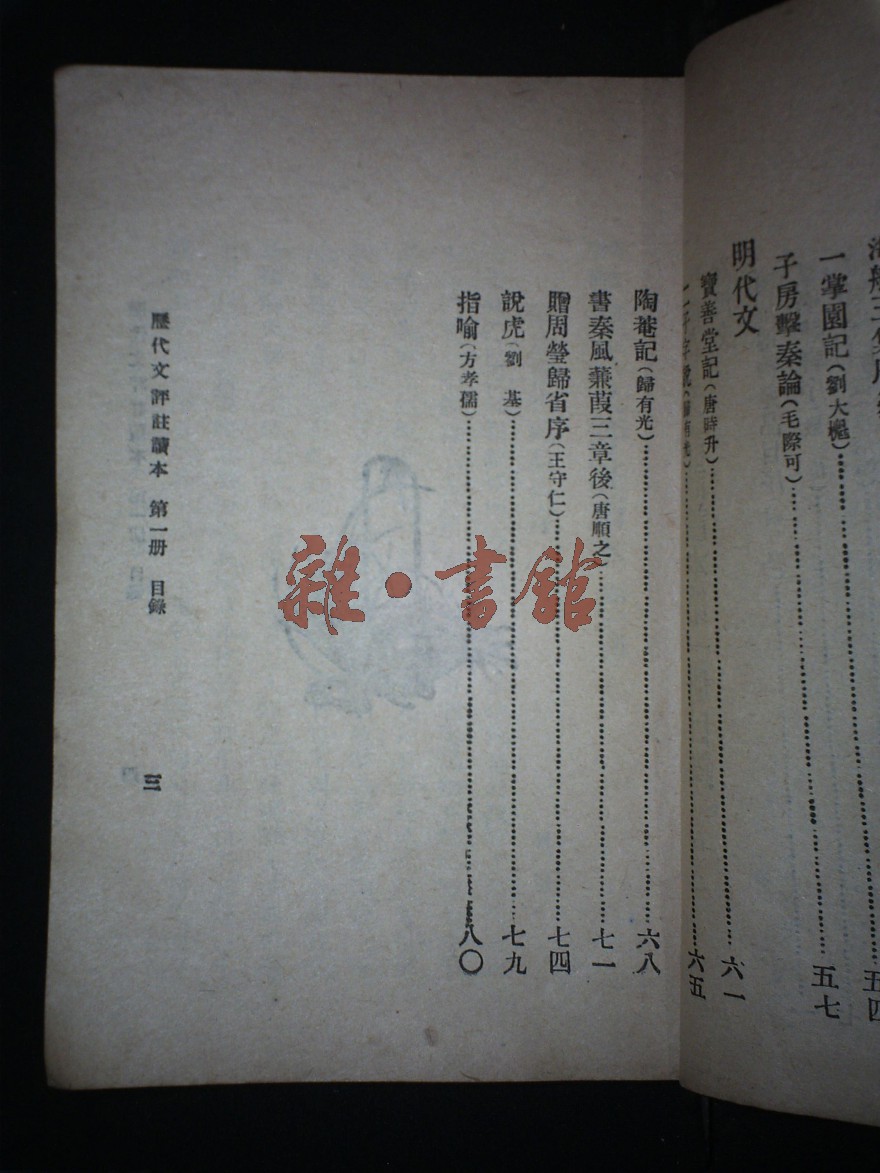 一掌園記(劉大櫆)五四
子房擊秦論(毛際可)五七
明代文
寶善堂記(唐時升)六一
二子字說(歸有光)六五
陶菴記(歸有光)六八
書秦風蒹葭三章後(唐順之)七一
贈周瑩歸省序(王守仁)七四
說虎(劉 基)七九
指喻(方孝孺)八〇
歷代文評註讀本 第一册 目錄
三
雜·書館